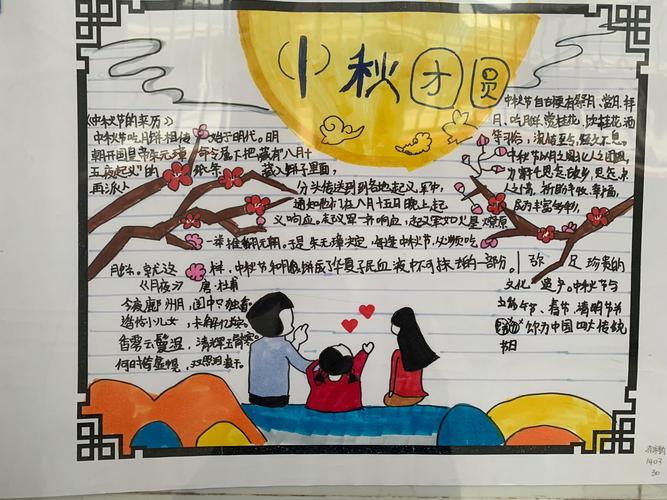 中秋团圆
《中秋节的来历》
中秋节吃月饼相传始于明代。明
朝开国皇帝朱元璋命令属下把藏有"八月十
五夜起义"的纸条藏入饼子里面,
再派人分头传送到各地起义军中,
通知他们在八月十五日晚上起
义响应。起义军一齐响应,起义军如星火燎原
一举推翻元朝。于是朱元璋决定,每逢中秋节,必须吃
月饼。就这样,中秋节和月饼拼成了华夏子民血液中不可抹去的一部分。
《月夜》 唐·杜甫
今夜鄜州月,闺中只独看。
遥怜小儿女,
香雾云鬟湿,清光玉臂寒。
何时倚虚幌,双照泪痕干。
中秋节自古便有祭月、赏月、拜
月、吃月饼、赏桂花、饮桂花酒
等习俗,流传至今,经久不息。
中秋节以月之圆兆人之团圆,
为寄托思念故乡,思念亲
人之情,祈盼丰收、幸福,
成为丰富多彩,
弥足珍贵的
文化遗产。中秋节与
端午节、春节、清明节并
称为中国四大传统
节日
1403
30